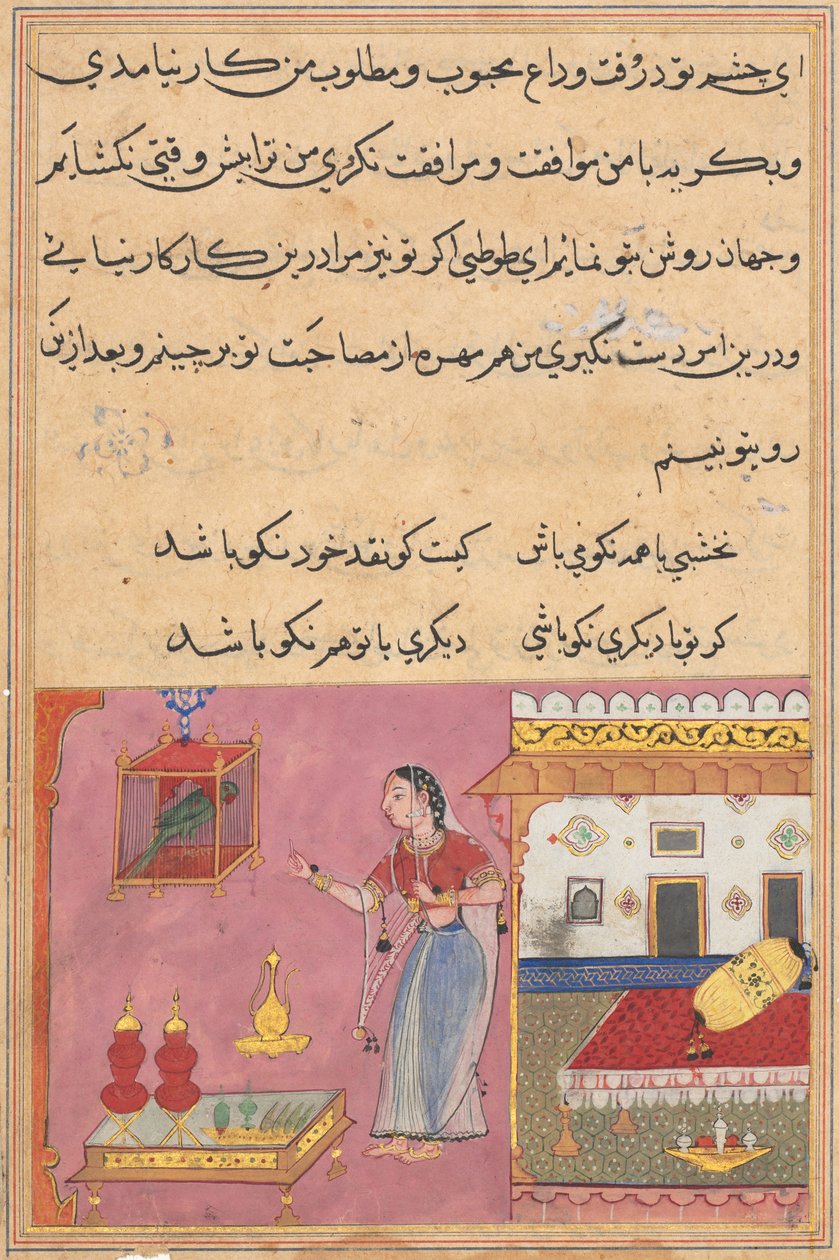 اي چشم تو در وقت وداع محبوب و مطلوب من کار نیامدي
و بکریه با من موافقت و مرافقت نکردي من ترا بیش وقتي نکشایم
و جهان روشن بتو نمایم اي طوطي اکر تو نیز مرا درین کار کار نیائي
و درین امر دست نکیري من هم مهره از مصاحبت تو برچینم و بعد ازین
روي تو نبینم
نخشبي با همه نکو مي باش کیست کو نقد خود نکو باشد
کر تو با دیکري نکو باشي دیکري با تو هم نکو باشد